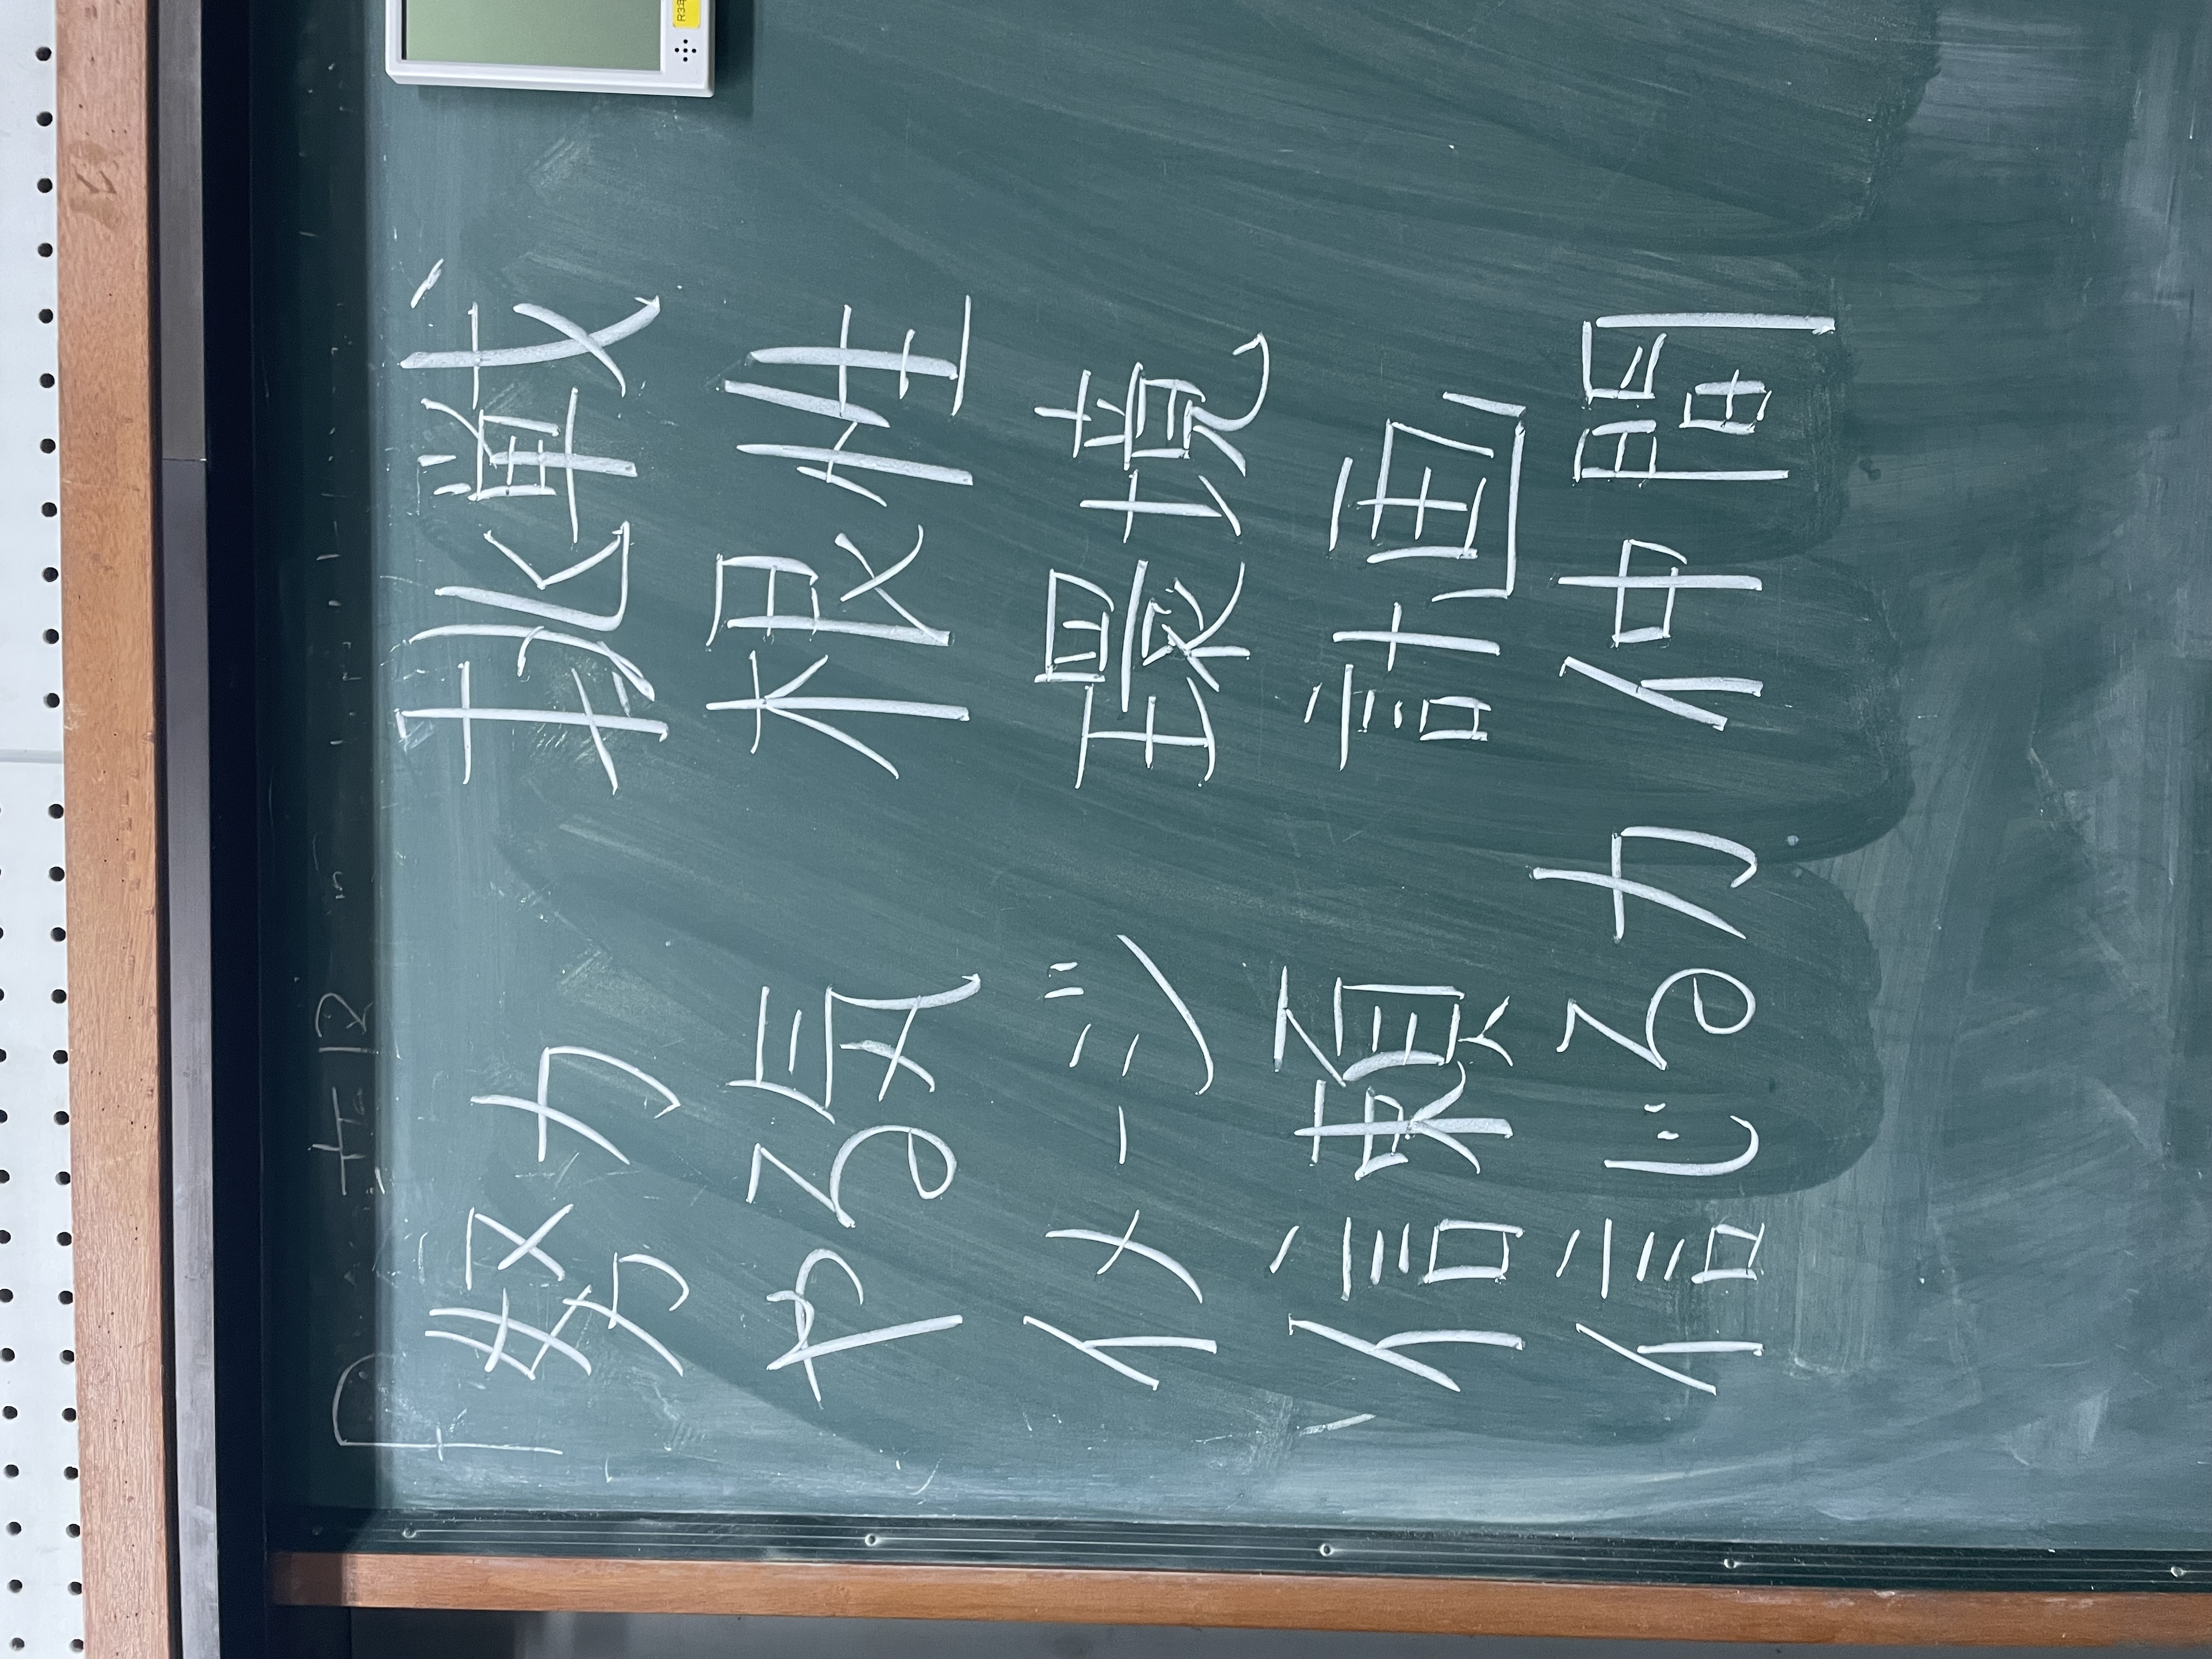 努力 挑戦
やる気 根性
イメージ 環境
信頼 計画
信じる力 仲間